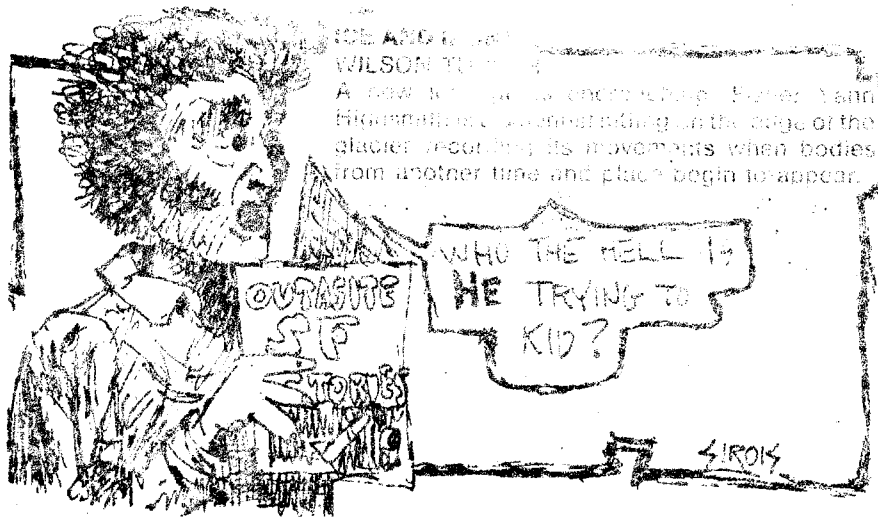 ICE AND
WILSON
A new encroaching.
on the edge of the
glacier recording its movements when bodies
from another time and place begin to appear.
WHO THE HELL IS
HE TRYING TO
KID?
OUTASITE
SF
STORIES
SIROIS